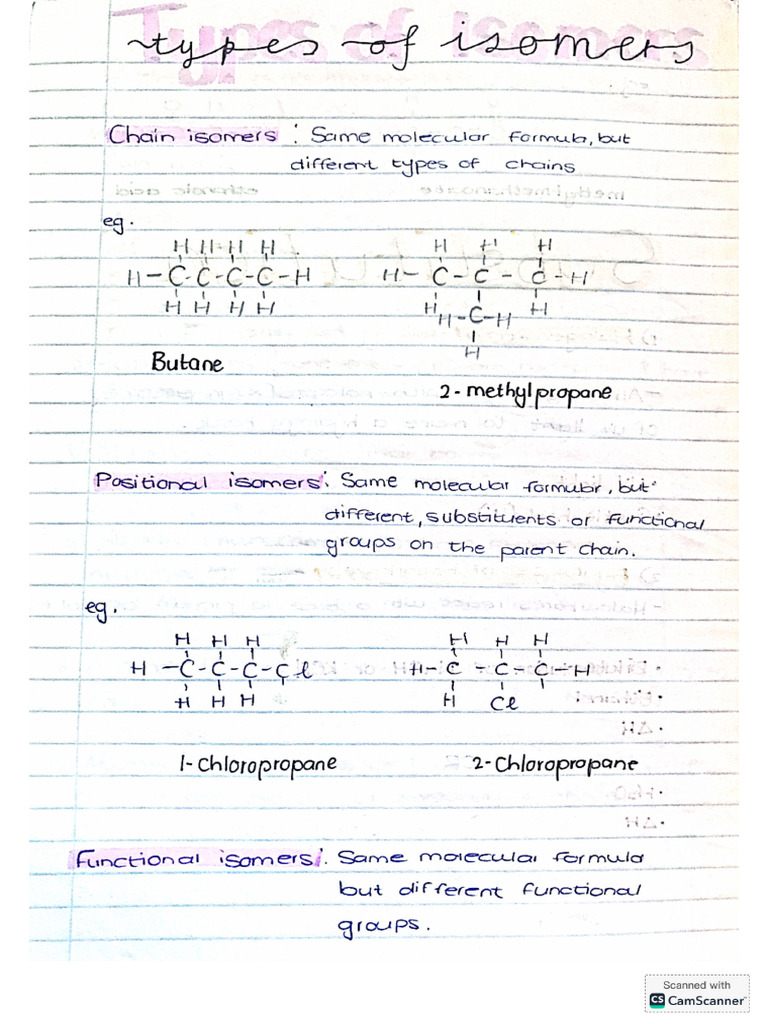 types of isomers
Chain isomers : Same molecular formula, but
different types of chains
eg.
H H H H
H-C-C-C-C-H
H H H H
Butane
H H H
H-C-C-C-H
H H-C-H H
H
2-methylpropane
Positional isomers: Same molecular formular, but
different, substituents or functional
groups on the parent chain.
eg.
H H H
H-C-C-C-Cl
H H H
1-Chloropropane
H H H
H-C-C-C-H
H Cl
2-Chloropropane
Functional isomers: Same molecular formula
but different functional
groups.
Scanned with
CS CamScanner